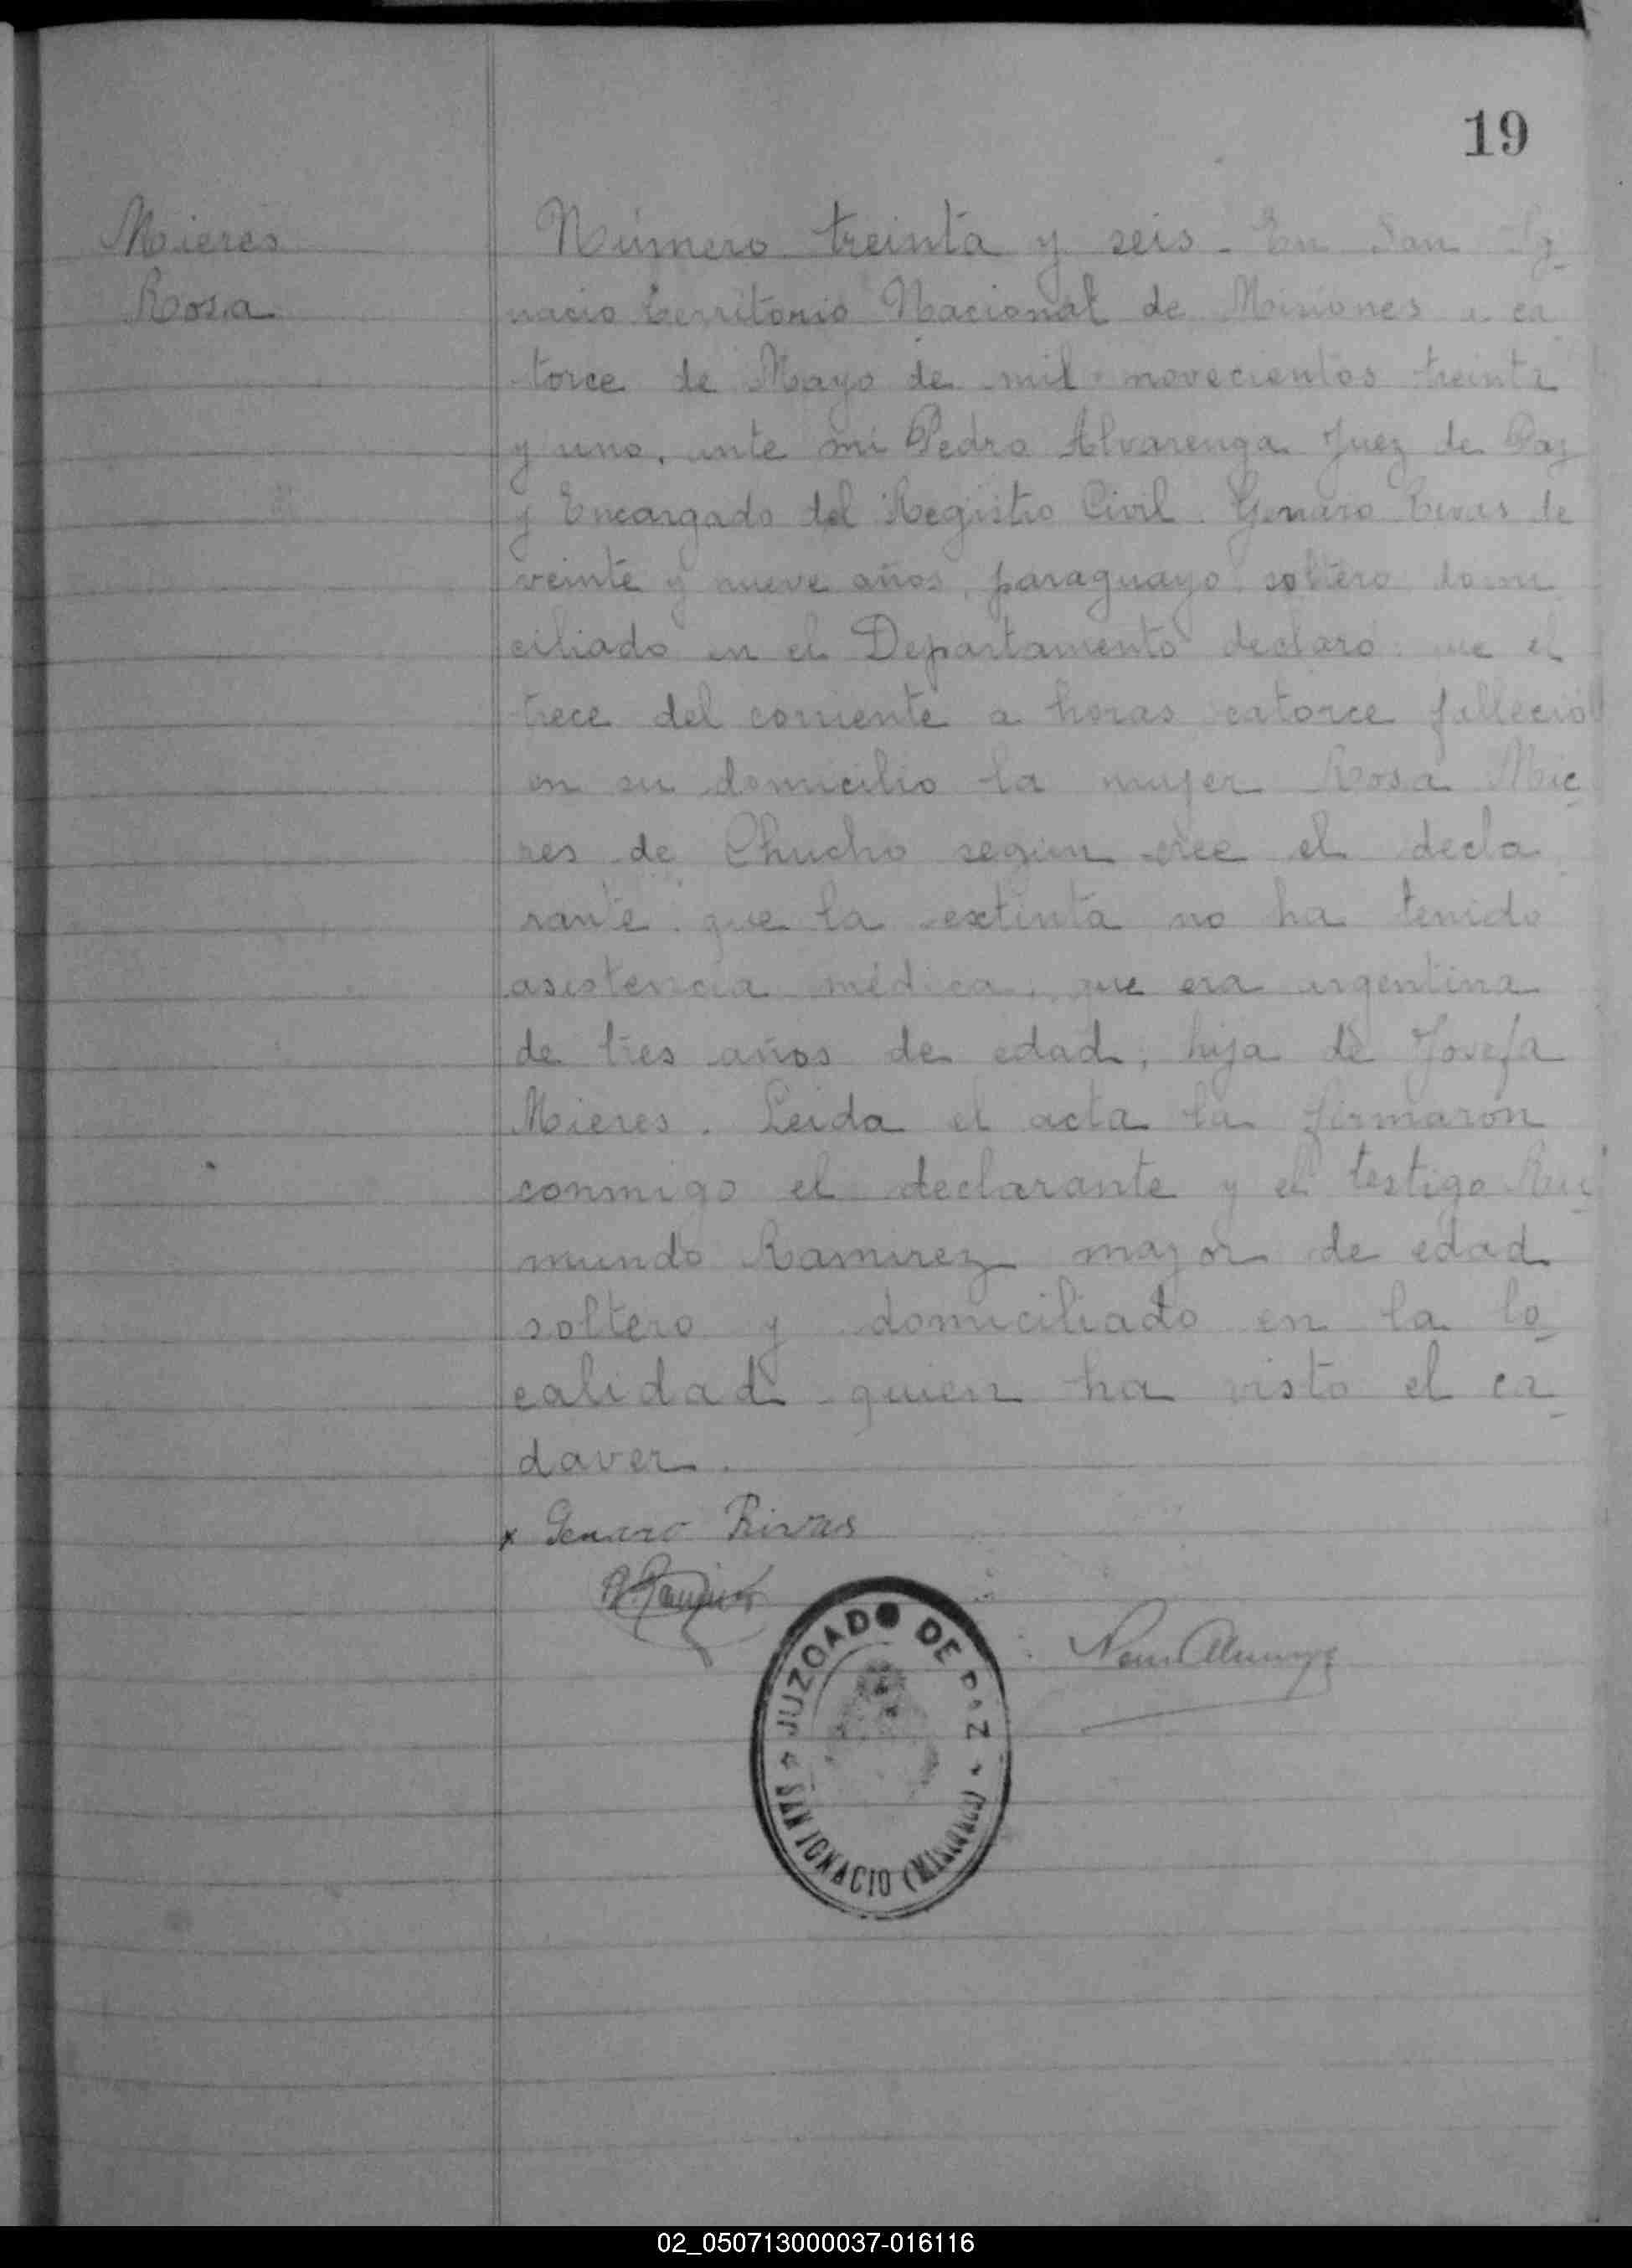 19
Mieres
Rosa
Número treinta y seis - En San Ig_
nacio territorio Nacional de Misiones a ca
torce de Mayo de mil novecientos treinta
y uno, ante mi Pedro Alvarenga Juez de Paz
y Encargado del Registro Civil. Genaro Rivas de
veinte y nueve años, paraguayo soltero domi
ciliado en el Departamento declaró: que el
trece del corriente a horas catorce falleció
en su domicilio la mujer Rosa Mie_
res de Chucho según cree el decla
rante. que la extinta no ha tenido
asistencia médica, que era argentina
de tres años de edad, hija de Josefa
Mieres. Leida el acta la firmaron
conmigo el declarante y el testigo
mundo Ramirez mayor de edad
soltero y domiciliado en la lo_
calidad quien ha visto el ca_
daver.
x Genaro Rivas
JUZGADO DE PAZ
SAN IGNACIO (MISIONES)
02_050713000037-016116